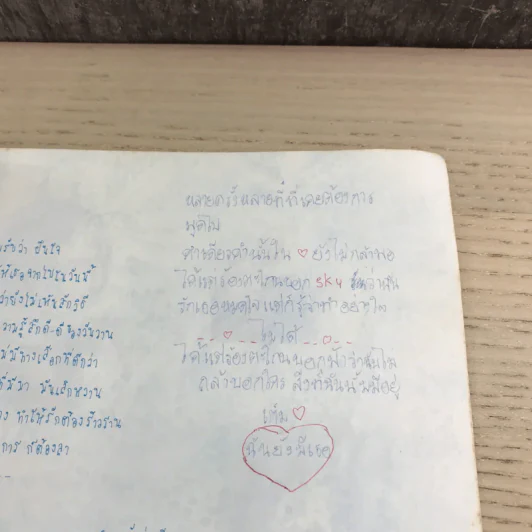 หลายครั้งหลายทีที่เคยต้องการ
พูดไป
คำเดียวคำนั้นใน ♡ ยังไม่กล้าพอ
ได้แต่ร้องตะโกนบอก sky ว่าฉัน
รักเธอหมดใจ แต่ก็รู้ว่าทำอย่างไร
ไม่ได้
ได้แต่ร้องตะโกนบอกฟ้าว่าฉันไม่
กล้าบอกใคร สิ่งที่ฉันนั้นมีอยู่
เต็ม ♡
ฉันยังมีเธอ
ว่า ฉันใจ
วันนี้
ว่ายังไม่เห็นสักรู้
ความรู้สึกดี-ดีของวันวาน
ไม่มีทางเลือกที่ดีกว่า
ที่มีมา มันเล็กหวาน
ทำให้รักต้องร้าวราน
การ ก็ต้องลา